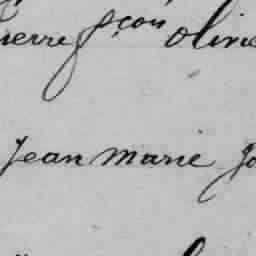 Pierre fçon Olivie
Jean Marie Jo